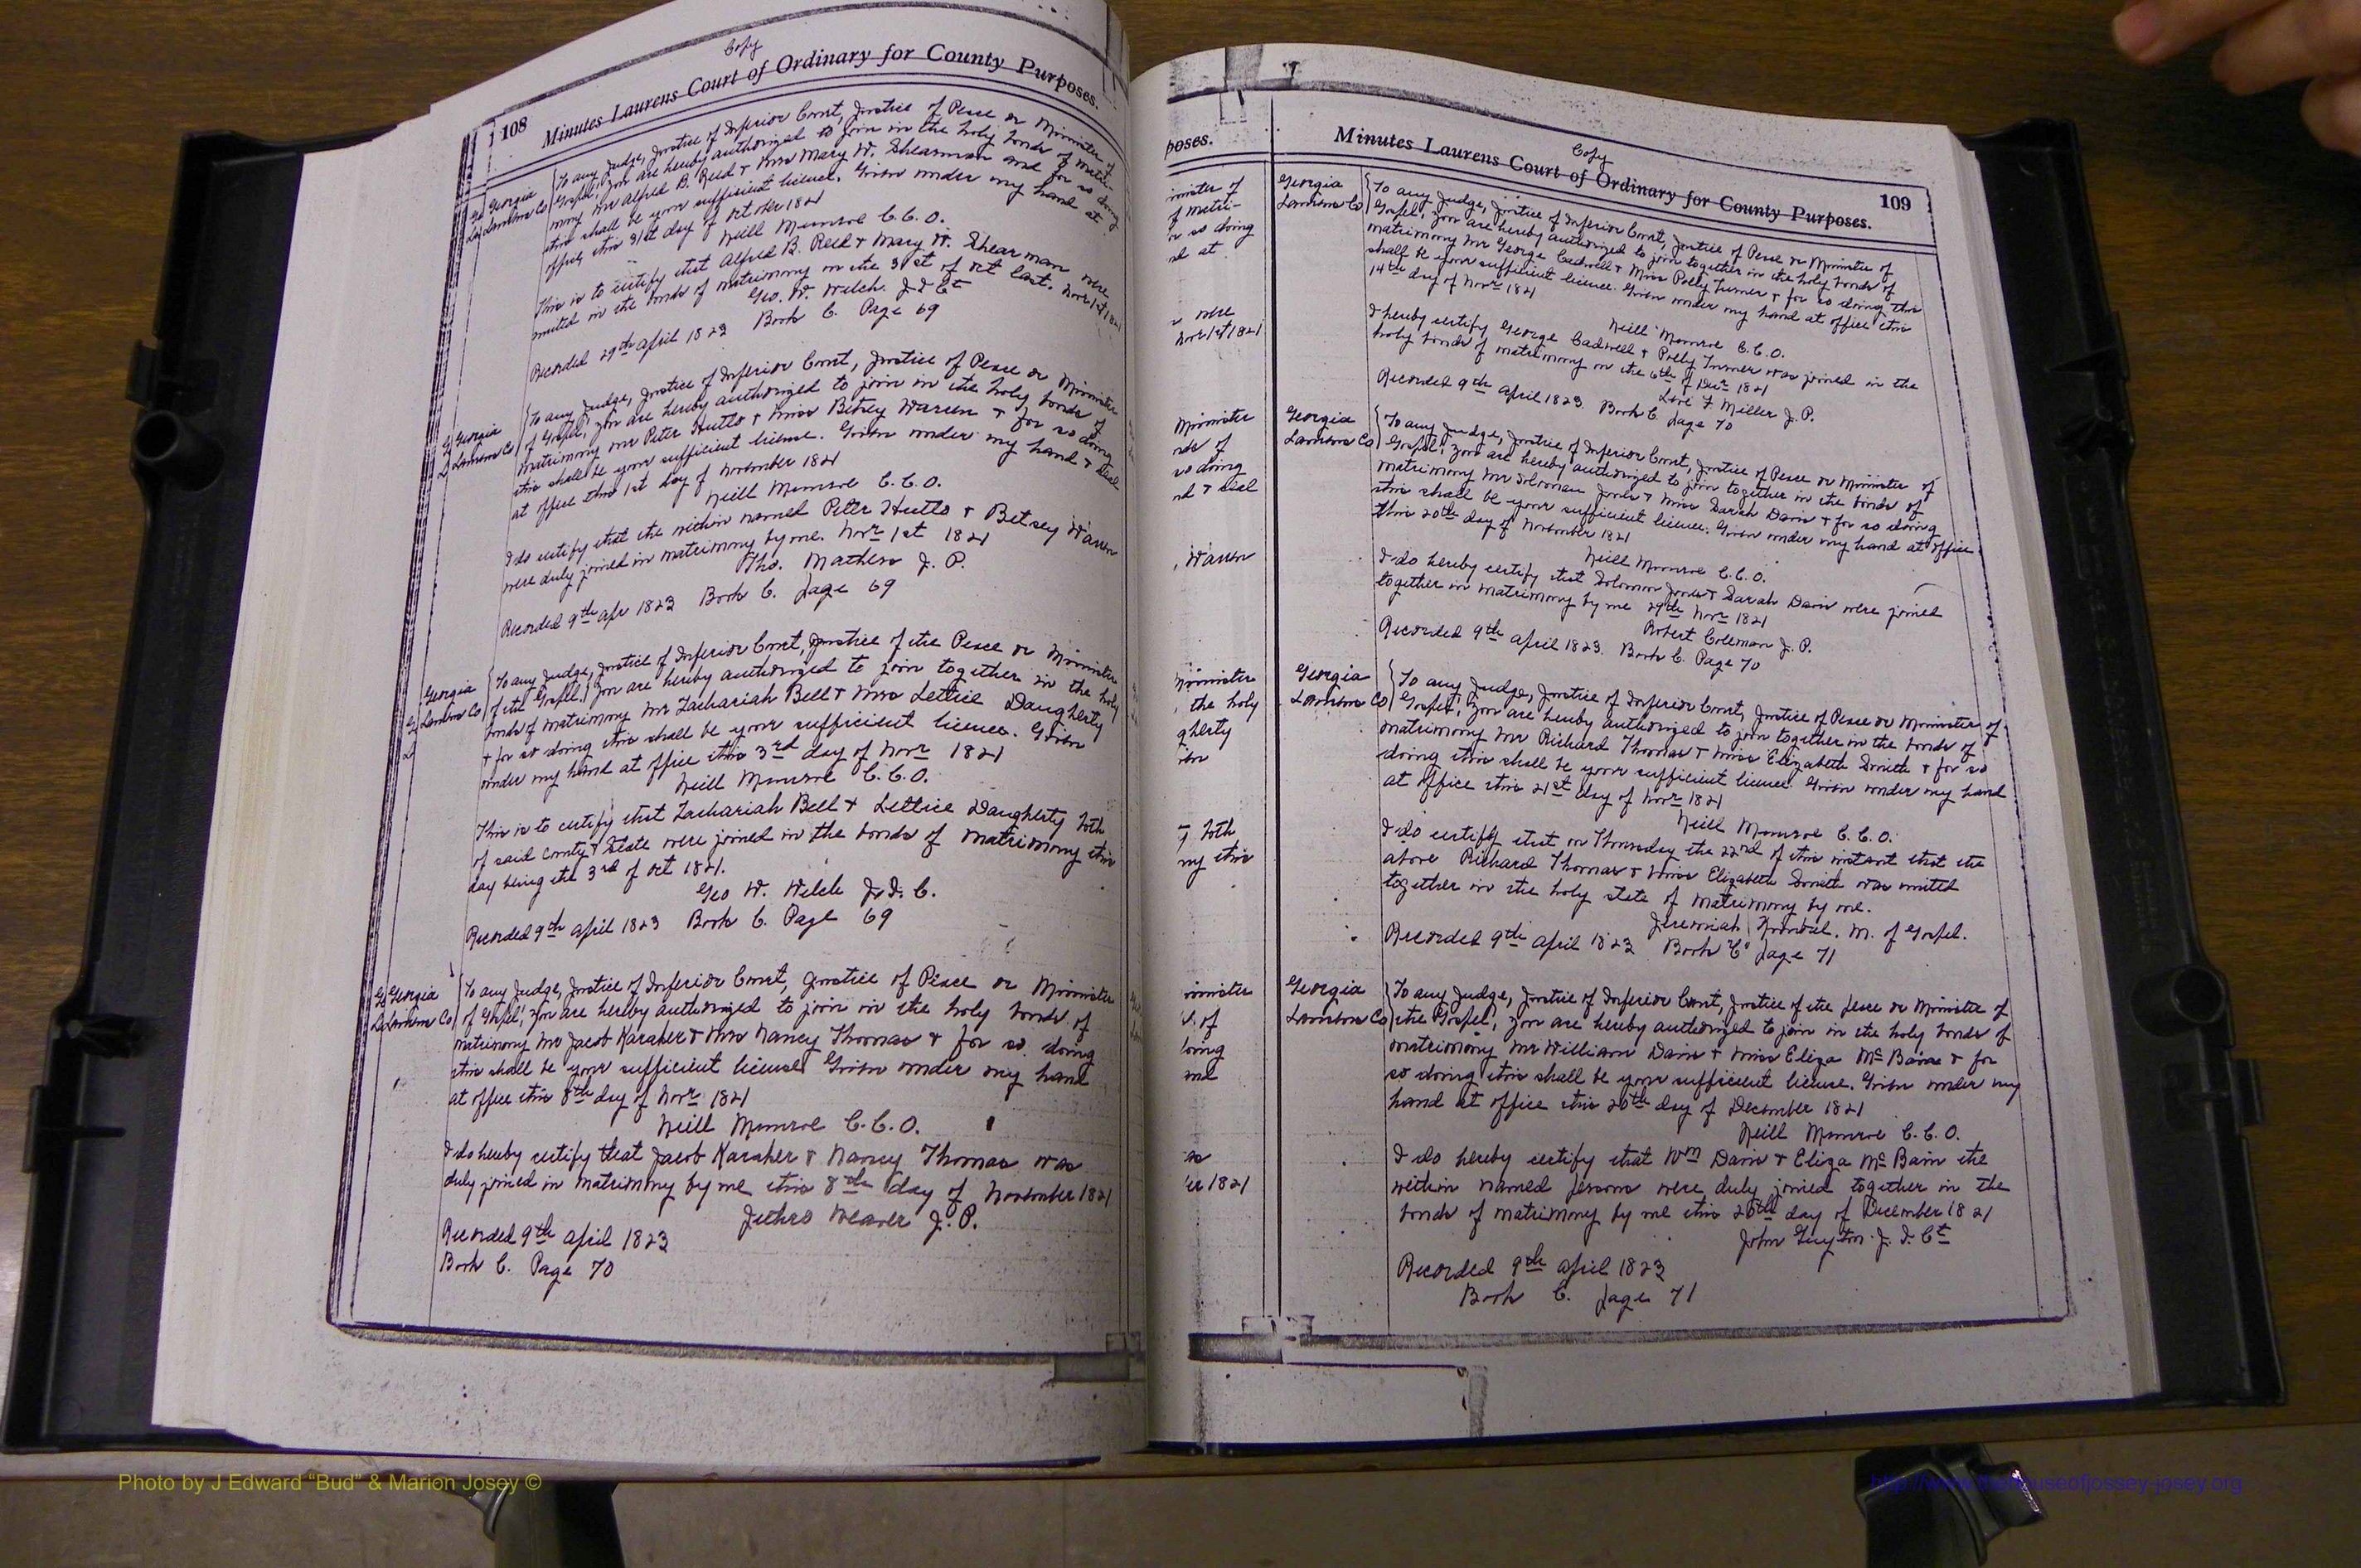 Copy
108 Minutes Laurens Court of Ordinary for County Purposes.
Georgia
Laurens Co
To any Judge, Justice of Inferior Court, Justice of Peace or Minister of
Gospel, you are hereby authorized to join in the holy bonds of matri-
mony Mr Alfred B. Reed & Mrs Mary W. Shearman and for so doing
this shall be your sufficient licence. Given under my hand at
office this 31st day of October 1821
Neill Munroe C.C.O.
This is to certify that Alfred B. Reed & Mary W. Shearman were
united in the bonds of matrimony on the 31st of Oct last. Novr 1st 1821
Geo. W. Welch. J I Ct
Recorded 29th April 1823 Book C. Page 69
Georgia
Laurens Co
To any Judge, Justice of Inferior Court, Justice of Peace or Minister
of Gospel, you are hereby authorized to join in the holy bonds of
matrimony Mr Peter Hutto & Miss Betsey Warren & for so doing
this shall be your sufficient license. Given under my hand & seal
at office this 1st day of November 1821
Neill Munroe C.C.O.
I do certify that the within named Peter Hutto & Betsey Warren
were duly joined in matrimony by me. Novr 1st 1821
Tho. Mathers J. P.
Recorded 9th apr 1823 Book C. page 69
Georgia
Laurens Co
To any Judge, Justice of Inferior Court, Justice of the Peace or Minister
of the Gospel. You are hereby authorized to join together in the holy
bonds of matrimony Mr Zachariah Bell & Mrs Lettice Daugherty
& for so doing this shall be your sufficient licence. Given
under my hand at office this 3rd day of Novr 1821
Neill Munroe C.C.O.
This is to certify that Zachariah Bell & Lettice Daugherty both
of said County & State were joined in the bonds of matrimony this
day being the 3rd of Oct 1821.
Geo W. Welch J. I. C.
Recorded 9th April 1823 Book C. Page 69
Georgia
Laurens Co
To any Judge, Justice of Inferior Court, Justice of Peace or Minister
of Gospel, you are hereby authorized to join in the holy bonds of
matrimony Mr Jacob Karaker & Mrs Nancy Thomas & for so doing
this shall be your sufficient license Given under my hand
at office this 8th day of Novr 1821
Neill Munroe C.C.O.
I do hereby certify that Jacob Karaker & Nancy Thomas was
duly joined in matrimony by me this 8th day of November 1821
Jethro Weaver J. P.
Recorded 9th April 1823
Book C. Page 70
poses.
inister of
of matri-
or so doing
nd at
were
Novr 1st 1821
Minister
nds of
so doing
nd & seal
, Warren
Minister
the holy
gherty
iven
y both
ny this
inister
s, of
doing
and
as
er 1821
Copy
Minutes Laurens Court of Ordinary for County Purposes. 109
Georgia
Laurens Co
To any Judge, Justice of Inferior Court, Justice of Peace or Minister of
Gospel, you are hereby authorized to join together in the holy bonds of
matrimony Mr George Cadwell & Miss Polly Turner & for so doing this
shall be your sufficient licence. Given under my hand at office this
14th day of Novr 1821
Neill Munroe C.C.O.
I hereby certify George Cadwell & Polly Turner was joined in the
holy bonds of matrimony on the 6th of Decr 1821
Love F. Miller J. P.
Recorded 9th April 1823. Book C. page 70
Georgia
Laurens Co
To any Judge, Justice of Inferior Court, Justice of Peace or Minister of
Gospel, you are hereby authorized to join together in the bonds of
matrimony Mr Soloman Jones & Miss Sarah Davis & for so doing
this shall be your sufficient licence. Given under my hand at office
this 20th day of November 1821
Neill Munroe C.C.O.
I do hereby certify that Solomon Jones & Sarah Davis were joined
together in matrimony by me 29th Novr 1821
Robert Coleman J. P.
Recorded 9th April 1823. Book C. Page 70
Georgia
Laurens Co
To any Judge, Justice of Inferior Court, Justice of Peace or Minister of
Gospel, you are hereby authorized to join together in the bonds of
matrimony Mr Richard Thomas & Miss Elizabeth Smith & for so
doing this shall be your sufficient licence. Given under my hand
at office this 21st day of Novr 1821
Neill Munroe C.C.O.
I do certify that on Thursday the 22nd of this instant that the
above Richard Thomas & Miss Elizabeth Smith was united
together in the holy state of matrimony by me.
Jeremiah M. of Gospel.
Recorded 9th April 1823 Book "C" page 71
Georgia
Laurens Co
To any Judge, Justice of Inferior Court, Justice of the peace or Minister of
the Gospel, you are hereby authorized to join in the holy bonds of
matrimony Mr William Davis & Miss Eliza McBain & for
so doing this shall be your sufficient license. Given under my
hand at office this 20th day of December 1821
Neill Munroe C.C.O.
I do hereby certify that Wm Davis & Eliza McBain the
within named persons were duly joined together in the
bonds of matrimony by me this 20th day of December 1821
John Guyton J. I. Ct
Recorded 9th April 1823
Book C. page 71
Photo by J Edward “Bud” & Marion Josey ©
http://www.thehouseofjossey-josey.org